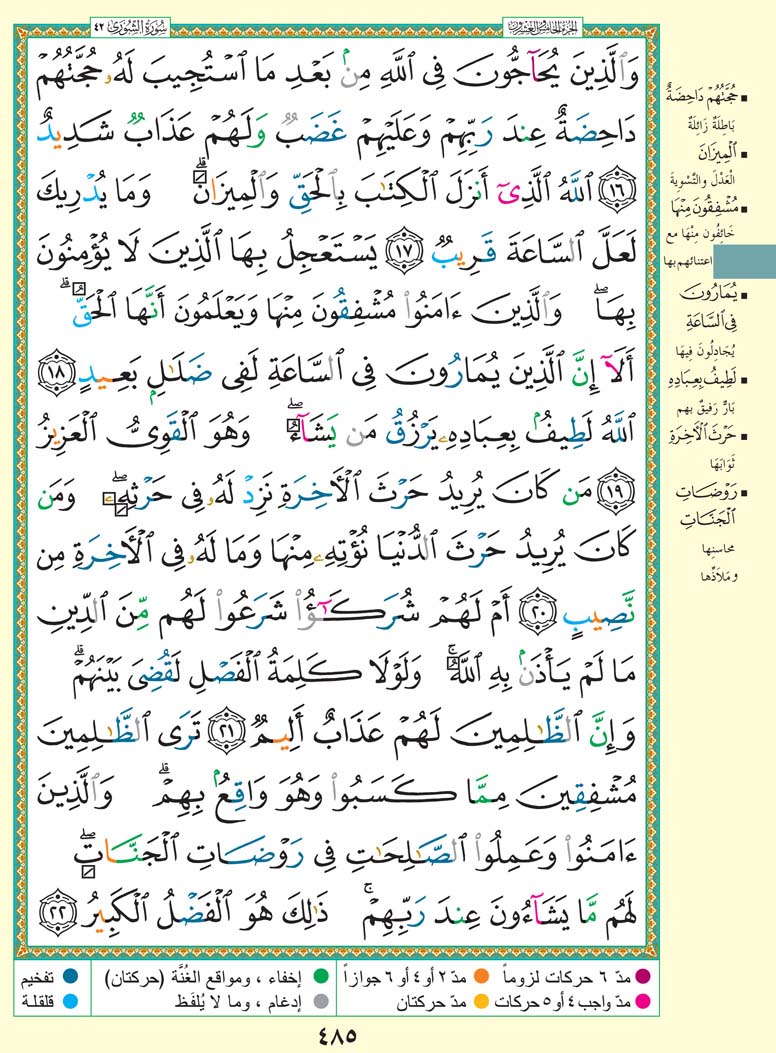 الجزء الخامس والعشرون
سُورَةُ الشُّورَىٰ ٤٢
وَٱلَّذِينَ يُحَآجُّونَ فِى ٱللَّهِ مِنۢ بَعْدِ مَا ٱسْتُجِيبَ لَهُۥ حُجَّتُهُمْ
دَاحِضَةٌ عِندَ رَبِّهِمْ وَعَلَيْهِمْ غَضَبٌ وَلَهُمْ عَذَابٌ شَدِيدٌ
﴿١٦﴾ ٱللَّهُ ٱلَّذِىٓ أَنزَلَ ٱلْكِتَٰبَ بِٱلْحَقِّ وَٱلْمِيزَانَ ۗ وَمَا يُدْرِيكَ
لَعَلَّ ٱلسَّاعَةَ قَرِيبٌ ﴿١٧﴾ يَسْتَعْجِلُ بِهَا ٱلَّذِينَ لَا يُؤْمِنُونَ
بِهَا ۖ وَٱلَّذِينَ ءَامَنُوا۟ مُشْفِقُونَ مِنْهَا وَيَعْلَمُونَ أَنَّهَا ٱلْحَقُّ ۗ
أَلَآ إِنَّ ٱلَّذِينَ يُمَارُونَ فِى ٱلسَّاعَةِ لَفِى ضَلَٰلٍۭ بَعِيدٍ ﴿١٨﴾
ٱللَّهُ لَطِيفٌۢ بِعِبَادِهِۦ يَرْزُقُ مَن يَشَآءُ ۖ وَهُوَ ٱلْقَوِىُّ ٱلْعَزِيزُ
﴿١٩﴾ مَن كَانَ يُرِيدُ حَرْثَ ٱلْأَخِرَةِ نَزِدْ لَهُۥ فِى حَرْثِهِۦ ۖ وَمَن
كَانَ يُرِيدُ حَرْثَ ٱلدُّنْيَا نُؤْتِهِۦ مِنْهَا وَمَا لَهُۥ فِى ٱلْأَخِرَةِ مِن
نَّصِيبٍ ﴿٢٠﴾ أَمْ لَهُمْ شُرَكَٰٓؤُا۟ شَرَعُوا۟ لَهُم مِّنَ ٱلدِّينِ
مَا لَمْ يَأْذَنۢ بِهِ ٱللَّهُ ۚ وَلَوْلَا كَلِمَةُ ٱلْفَصْلِ لَقُضِىَ بَيْنَهُمْ ۗ
وَإِنَّ ٱلظَّٰلِمِينَ لَهُمْ عَذَابٌ أَلِيمٌ ﴿٢١﴾ تَرَى ٱلظَّٰلِمِينَ
مُشْفِقِينَ مِمَّا كَسَبُوا۟ وَهُوَ وَاقِعٌۢ بِهِمْ ۗ وَٱلَّذِينَ
ءَامَنُوا۟ وَعَمِلُوا۟ ٱلصَّٰلِحَٰتِ فِى رَوْضَاتِ ٱلْجَنَّاتِ ۖ
لَهُم مَّا يَشَآءُونَ عِندَ رَبِّهِمْ ۚ ذَٰلِكَ هُوَ ٱلْفَضْلُ ٱلْكَبِيرُ ﴿٢٢﴾
▪ حُجَّتُهُمْ دَاحِضَةٌ
بَاطِلَةٌ زَائِلَةٌ
▪ ٱلْمِيزَانَ
الْعَدْلَ والتَّسْوِيةَ
▪ مُشْفِقُونَ مِنْهَا
خَائِفُون مِنْهَا مع
اعتنائهم بها
▪ يُمَارُونَ
فِى ٱلسَّاعَةِ
يُجَادِلُونَ فِيهَا
▪ لَطِيفٌ بِعِبَادِهِ
بَارٌّ رَفِيقٌ بهم
▪ حَرْثَ ٱلْأَخِرَةِ
ثَوَابَهَا
▪ رَوْضَاتِ
ٱلْجَنَّاتِ
محاسِنِها
ومَلاذِّها
مدّ ٦ حركات لزوماً
مدّ ٢ أو ٤ أو ٦ جوازاً
إخفاء ، ومواقع الغُنَّة (حركتان)
تفخيم
مدّ واجب ٤ أو ٥ حركات
مدّ حركتان
إدغام ، وما لا يُلفَظ
قلقلة
٤٨٥